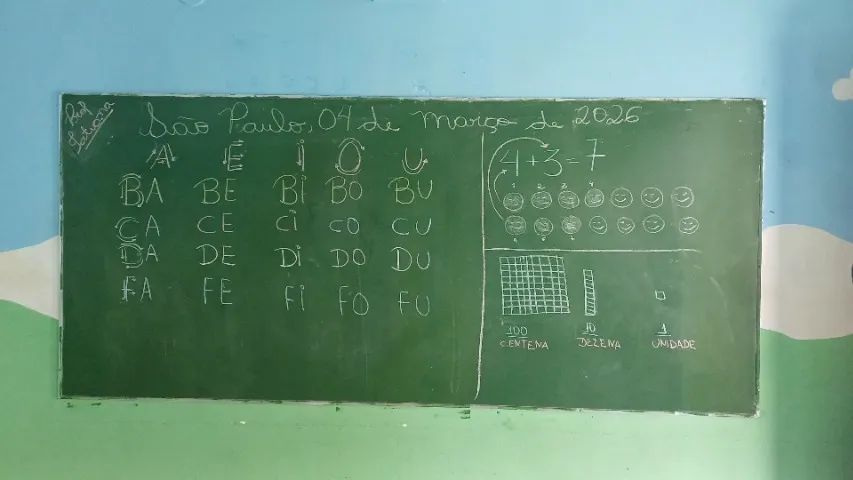 Prof
São Paulo, 04 de março de 2026
A E I O U
BA BE BI BO BU
CA CE CI CO CU
DA DE DI DO DU
FA FE FI FO FU
4 + 3 = 7
1 2 3 4
100 10 1
CENTENA DEZENA UNIDADE